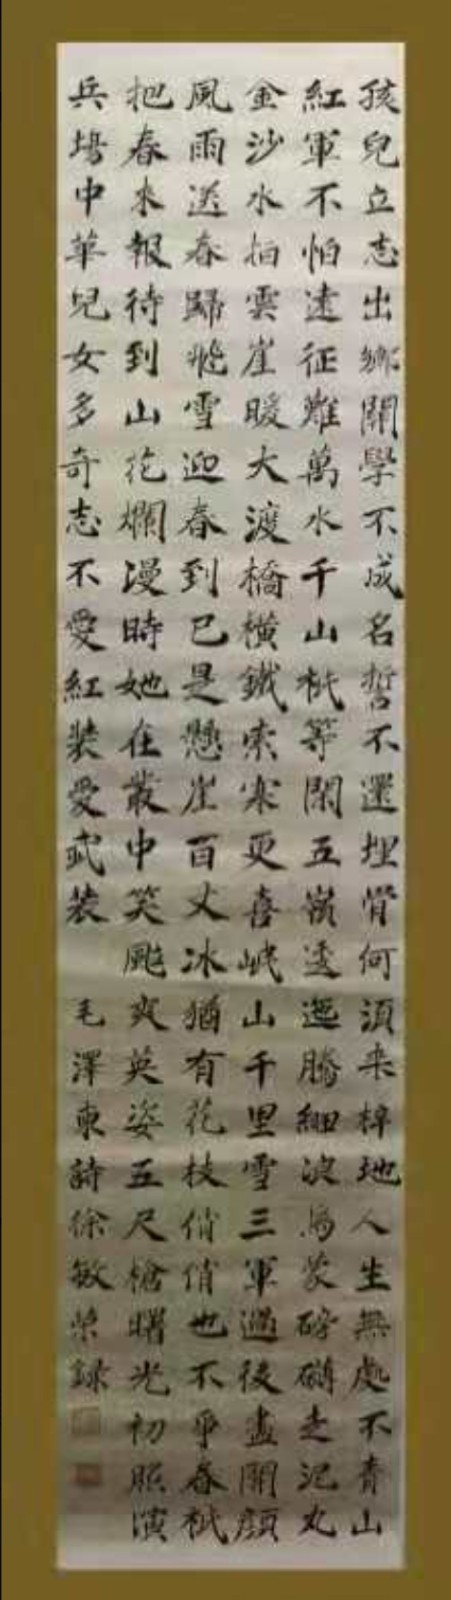 孩兒立志出鄉關學不成名誓不還埋骨何須桑梓地人生無處不青山
紅軍不怕遠征難萬水千山秖等閑五嶺逶迤騰細浪烏蒙磅礴走泥丸
金沙水拍雲崖暖大渡橋橫鐵索寒更喜岷山千里雪三軍過後盡開顏
風雨送春歸飛雪迎春到已是懸崖百丈冰猶有花枝俏俏也不爭春秖
把春来報待到山花爛漫時她在叢中笑颯爽英姿五尺槍曙光初照演
兵場中華兒女多奇志不愛紅裝愛武裝 毛澤東詩徐敏榮録